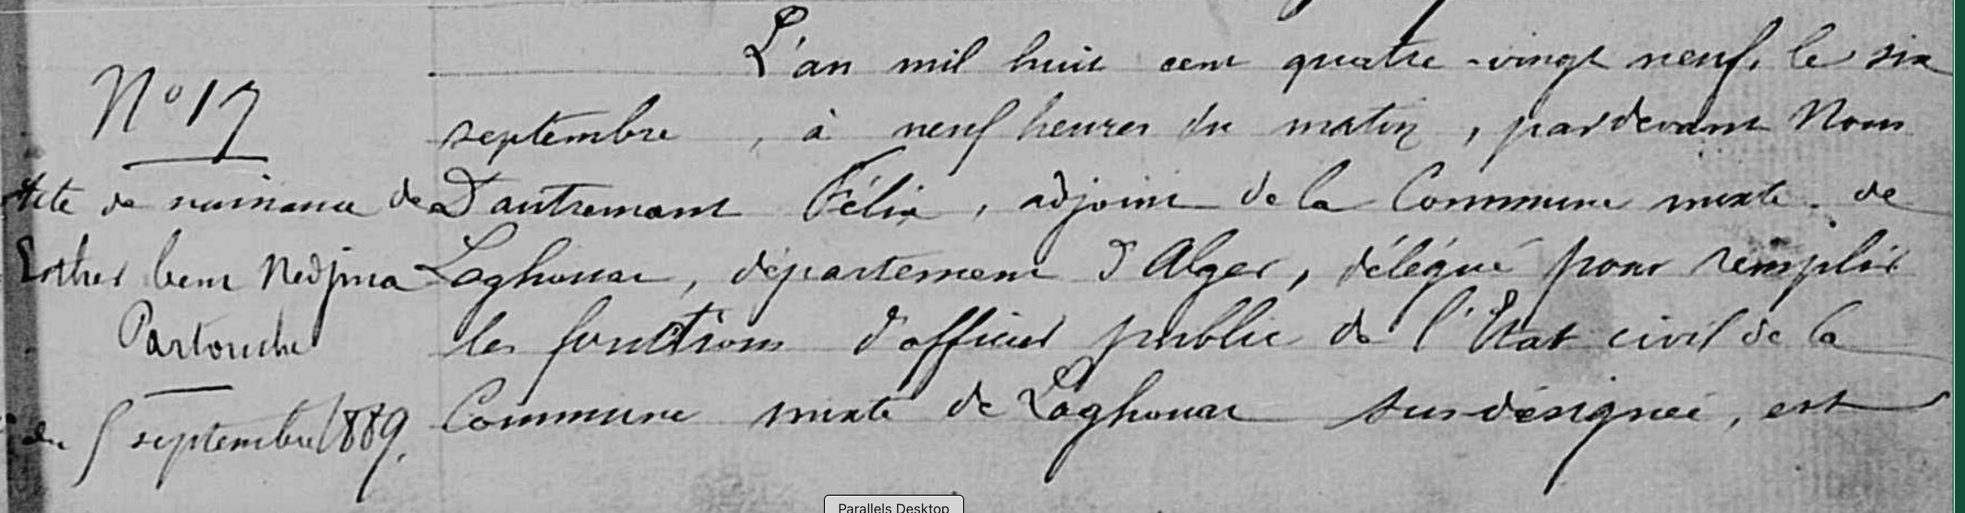 N° 17
Acte de naissance de
Esther bent Nedjma
Partouche
du 5 septembre 1889.
L'an mil huit cent quatre-vingt neuf, le six
septembre, à neuf heures du matin, pardevant Nous
Dautremant Félix, adjoint de la Commune mixte de
Laghouat, département d'Alger, délégué pour remplir
les fonctions d'officier public de l'Etat civil de la
Commune mixte de Laghouat sus-désignée, est
Parallels Desktop